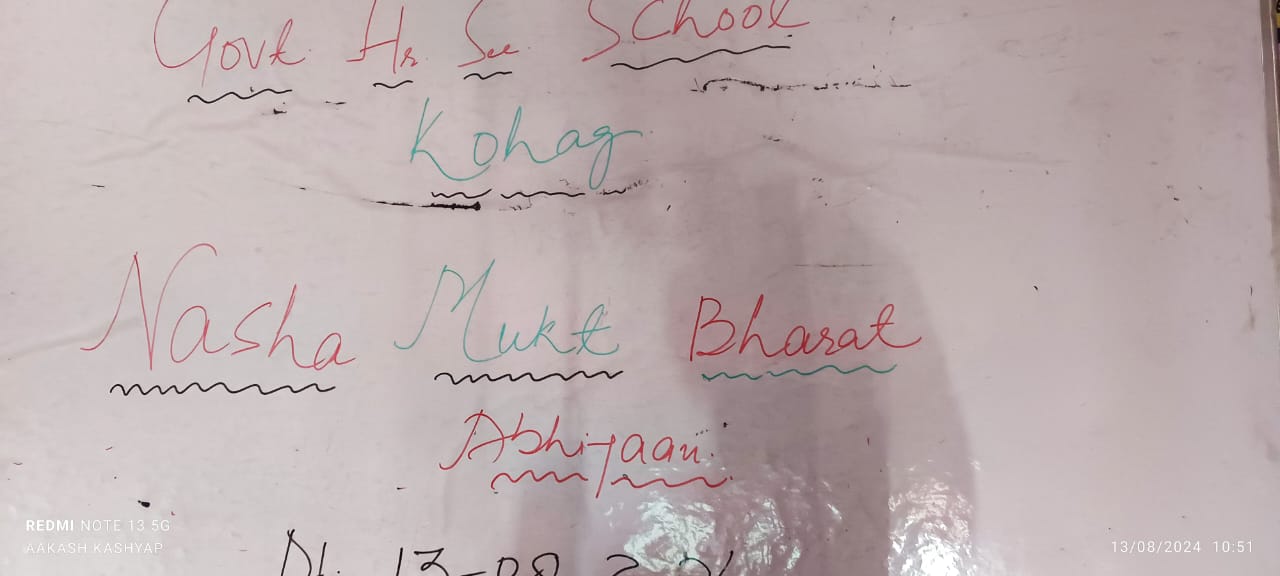 Govt. Hr. Sec. School
Kohag
Nasha Mukt Bharat
Abhiyaan
Dt. 13-08-2024
REDMI NOTE 13 5G
AAKASH KASHYAP
13/08/2024 10:51